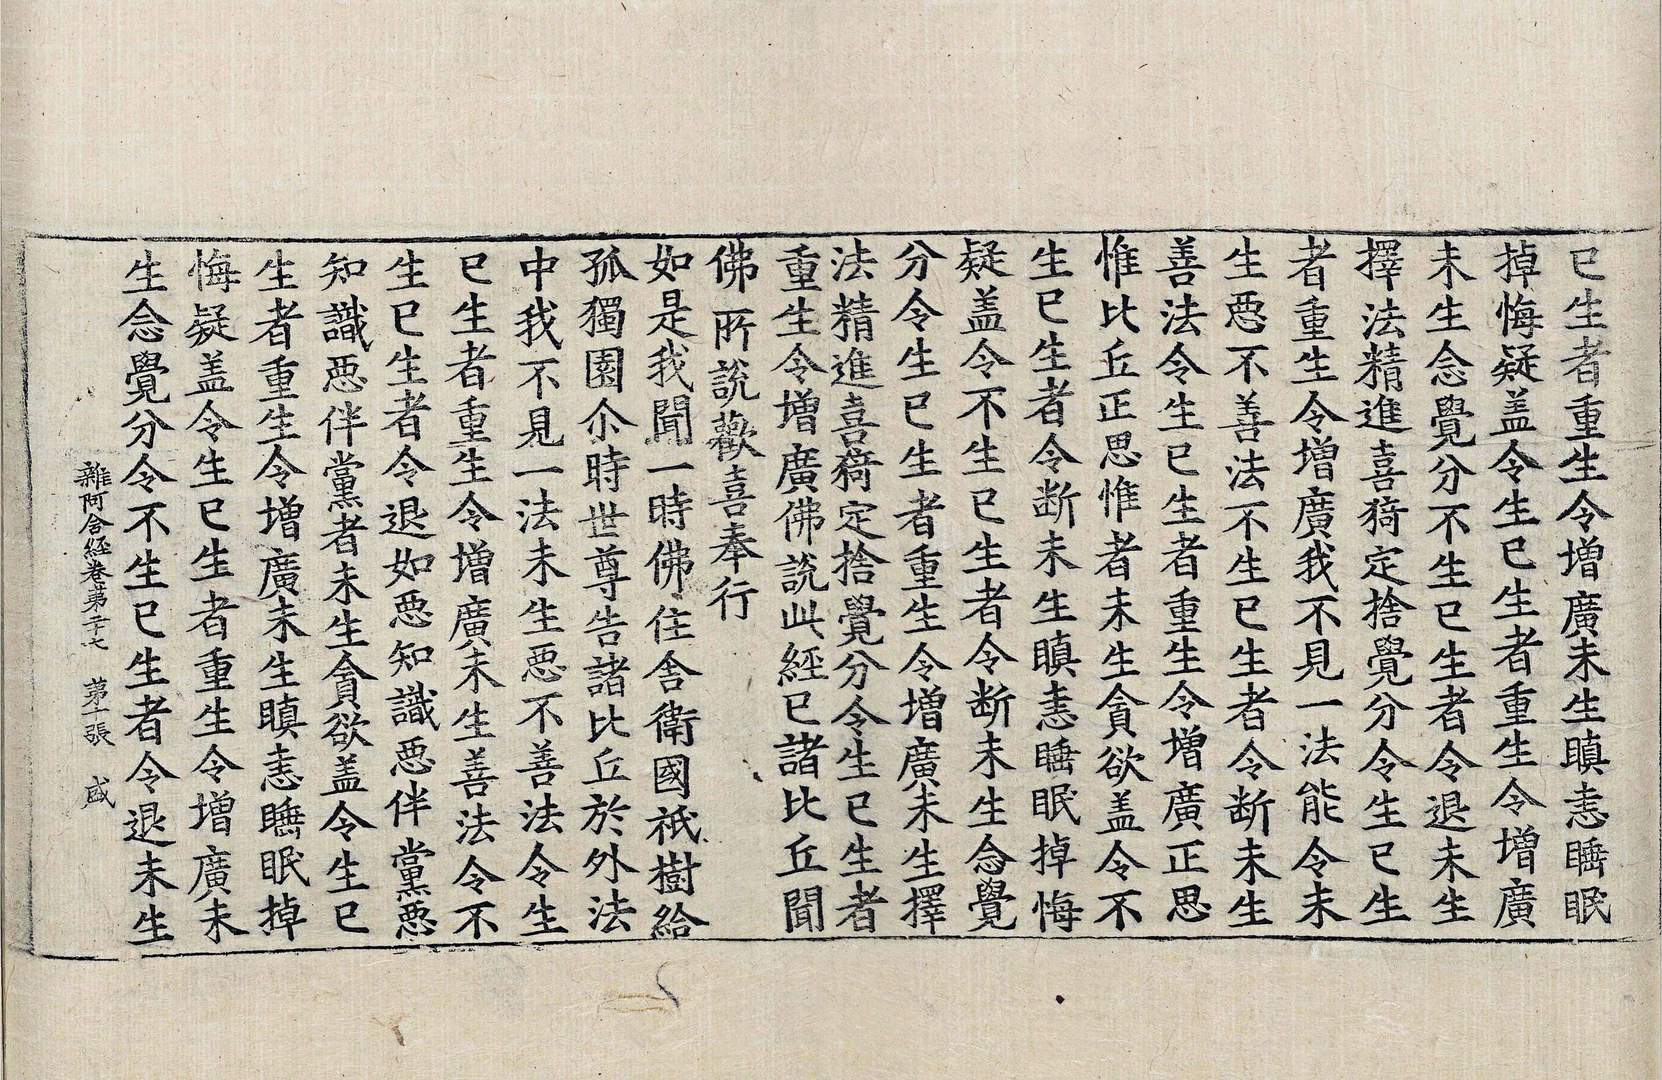 已生者重生令增廣未生瞋恚睡眠
掉悔疑盖令生已生者重生令增廣
未生念覺分不生已生者令退未生
擇法精進喜猗定捨覺分令生已生
者重生令增廣我不見一法能令未
生惡不善法不生已生者令断未生
善法令生已生者重生令增廣正思
惟比丘正思惟者未生貪欲盖令不
生已生者令断未生瞋恚睡眠掉悔
疑盖令不生已生者令断未生念覺
分令生已生者重生令增廣未生擇
法精進喜猗定捨覺分令生已生者
重生令增廣佛說此經已諸比丘聞
佛所說歡喜奉行
如是我聞一時佛住舍衛國祇樹給
孤獨園尒時世尊告諸比丘於外法
中我不見一法未生惡不善法令生
已生者重生令增廣未生善法令不
生已生者令退如惡知識惡伴黨惡
知識惡伴黨者未生貪欲盖令生已
生者重生令增廣未生瞋恚睡眠掉
悔疑盖令生已生者重生令增廣未
生念覺分令不生已生者令退未生
雜阿含経卷苐二十七 苐十張 盛